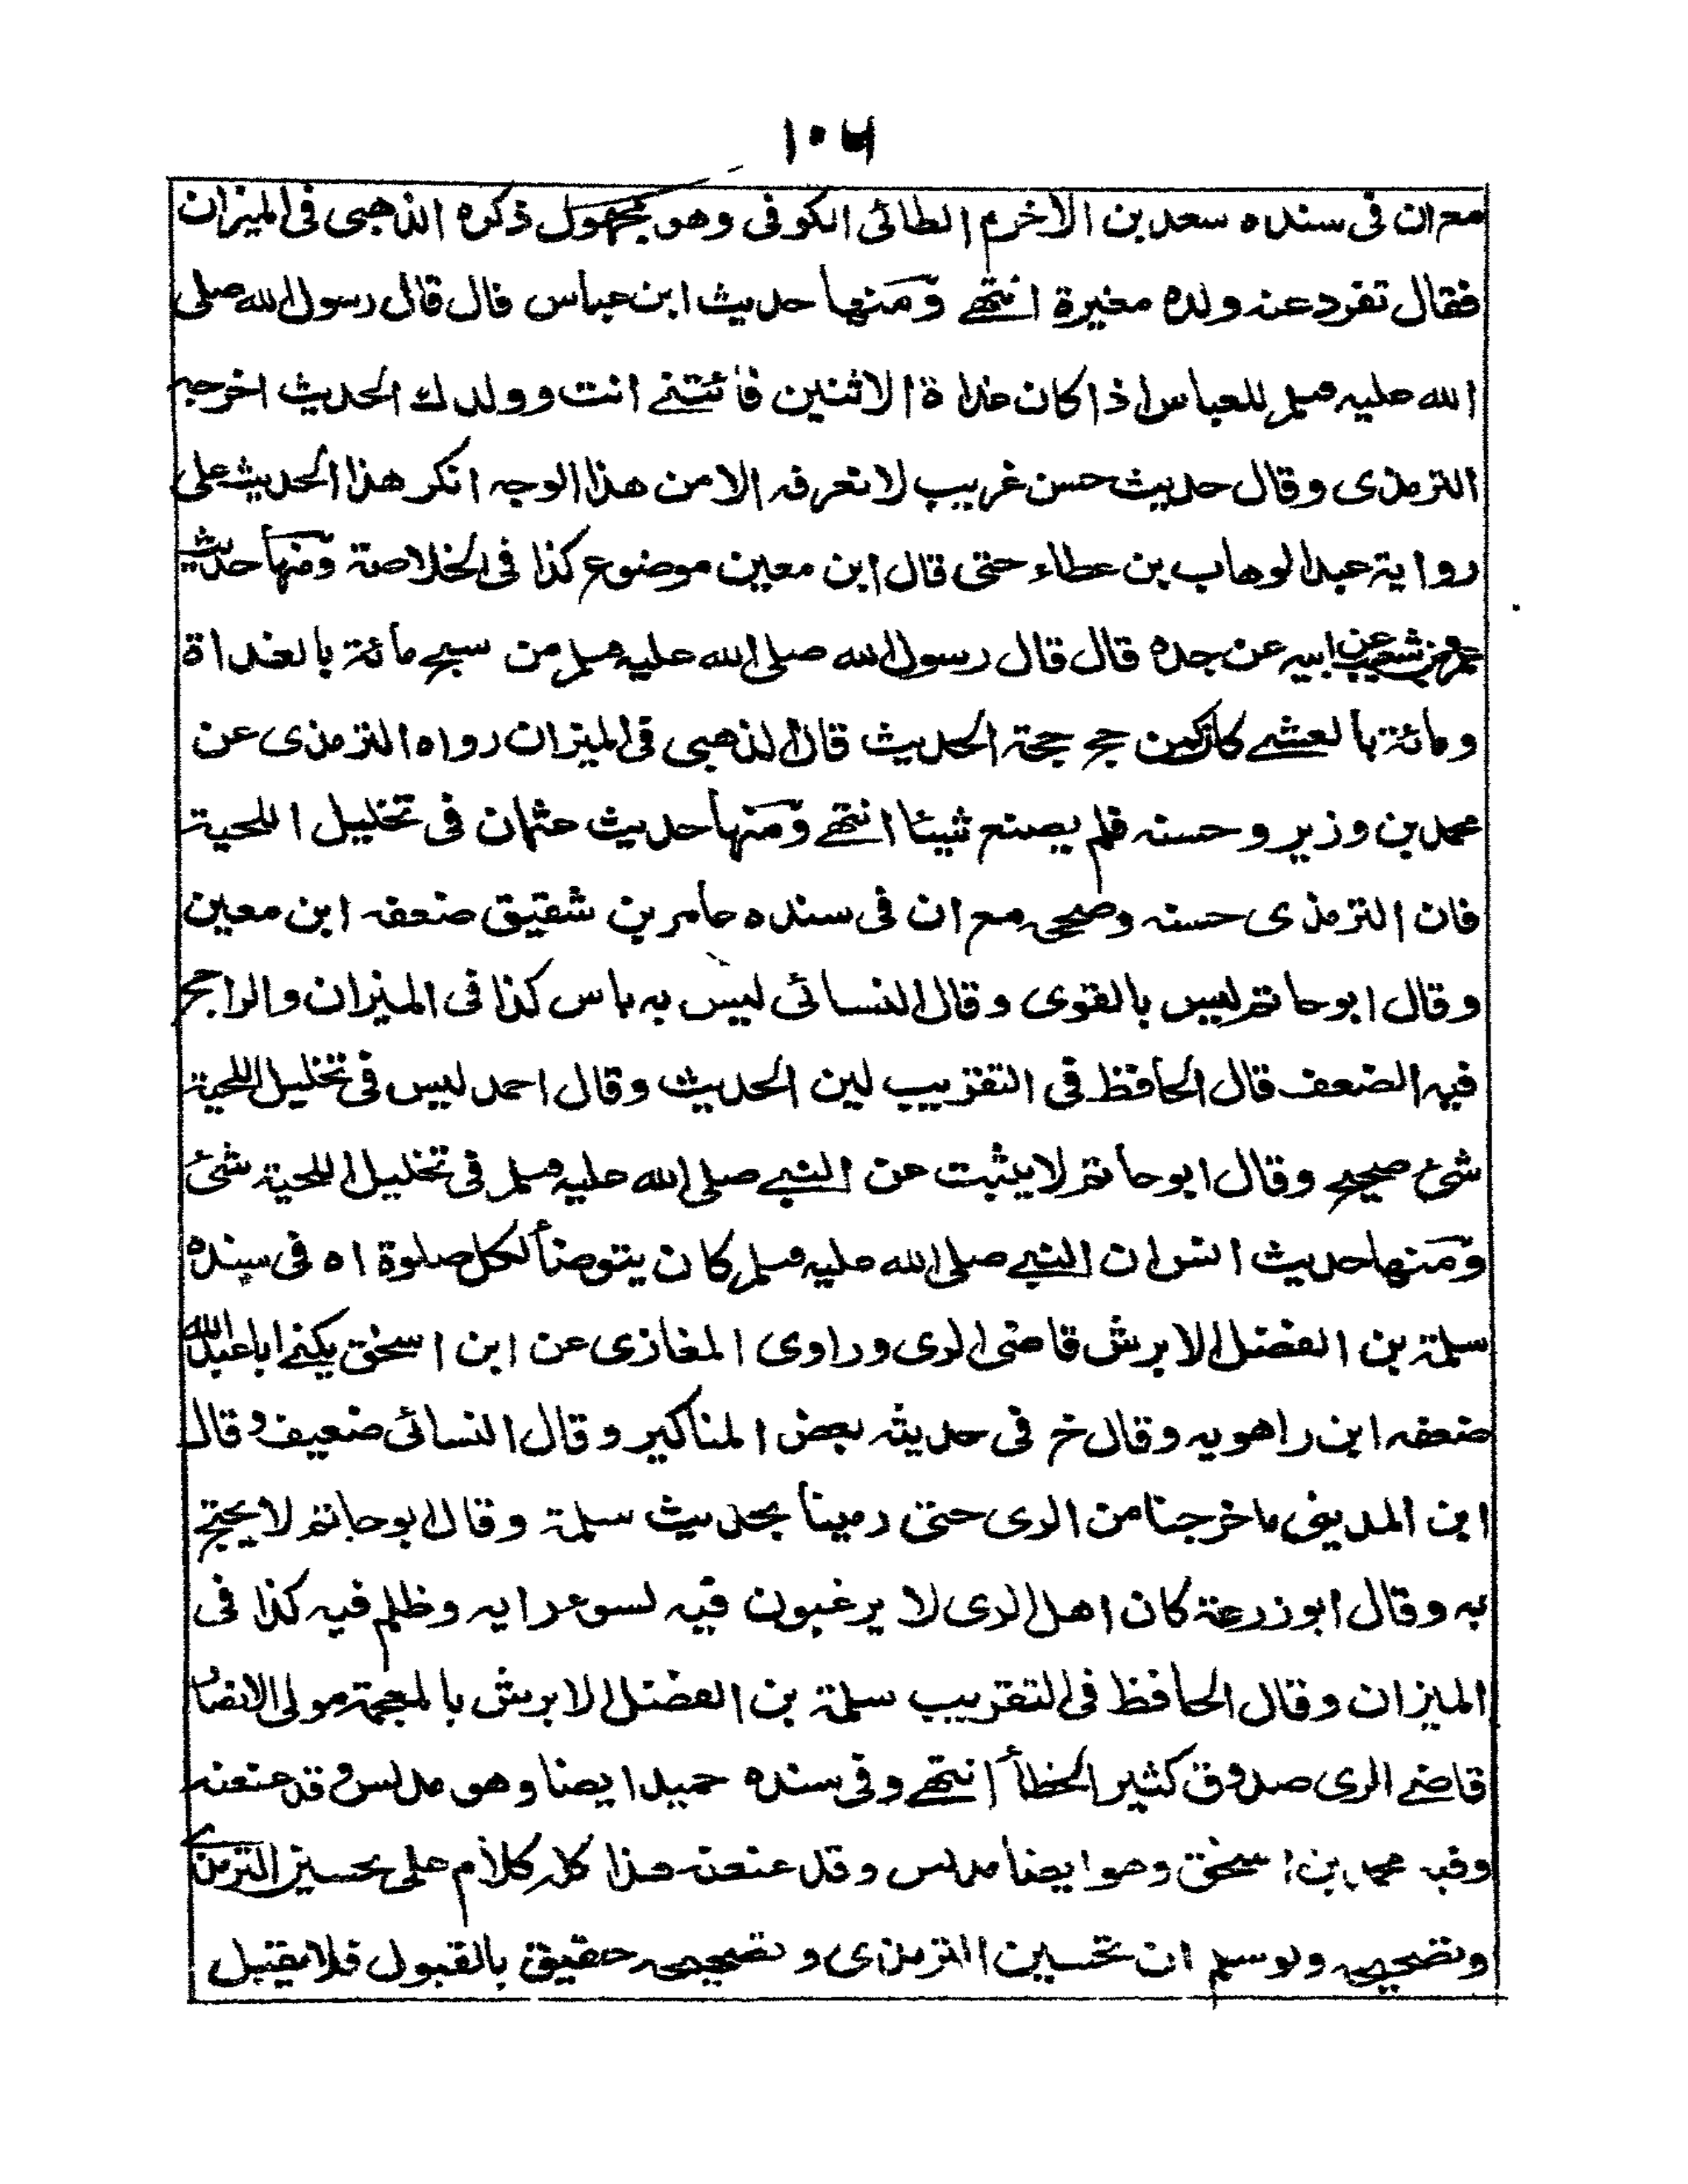 ١٠٦
مع ان فى سنده سعد بن الاخرم الطائى الكوفى وهو مجهول ذكره الذهبى فى الميزان
فقال تفرد عنه ولده مغيرة انتهے ومنها حديث ابن عباس قال قال رسول الله صلى
الله عليه وسلم للعباس اذا كان غداة الاثنين فأتنے انت وولدك الحديث اخرجه
الترمذى وقال حديث حسن غريب لا نعرفه الا من هذا الوجه انكر هذا الحديث على
رواية عبد الوهاب بن عطاء حتى قال ابن معين موضوع كذا فى الخلاصة ومنها حديث
عمرو بن شعيب عن ابيه عن جده قال قال رسول الله صلى الله عليه وسلم من سبح مائة بالغداة
ومائة بالعشے كان كمن حج حجة الحديث قال الذهبى فى الميزان رواه الترمذى عن
محمد بن وزير وحسنه فلم يصنع شيئا انتهے ومنها حديث عثمان فى تخليل اللحية
فان الترمذى حسنه وصححه مع ان فى سنده عامر بن شقيق ضعفه ابن معين
وقال ابو حاتم ليس بالقوى وقال النسائى ليس به باس كذا فى الميزان والراجح
فيه الضعف قال الحافظ فى التقريب لين الحديث وقال احمد ليس فى تخليل اللحية
شئ صحيح وقال ابو حاتم لا يثبت عن النبے صلى الله عليه وسلم فى تخليل اللحية شئ
ومنها حديث انس ان النبے صلى الله عليه وسلم كان يتوضأ لكل صلوة اه فى سنده
سلمة بن الفضل الابرش قاضى الرى وراوى المغازى عن ابن اسحق يكنے ابا عبد الله
ضعفه ابن راهويه وقال خ فى حديثه بعض المناكير وقال النسائى ضعيف وقال
ابن المدينى ما خرجنا من الرى حتى رمينا بحديث سلمة وقال ابو حاتم لا يحتج
به وقال ابو زرعة كان اهل الرى لا يرغبون فيه لسوء رايه وظلم فيه كذا فى
الميزان وقال الحافظ فى التقريب سلمة بن الفضل الابرش بالمعجمة مولى الانصار
قاضے الرى صدوق كثير الخطأ انتهے وفى سنده حميد ايضا وهو مدلس وقد عنعنه
وفيه محمد بن اسحق وهو ايضا مدلس وقد عنعنه هذا كله كلام على تحسين الترمذى
وتصحيحه ولو سلم ان تحسين الترمذى وتصحيحه حقيق بالقبول فلا يقبل